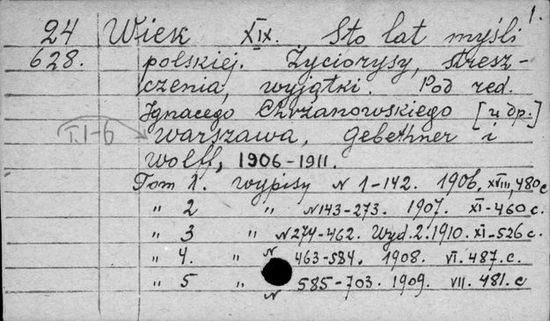 1.
24 Wiek XIX. Sto lat myśli
628. polskiej. Życiorysy, stresz-
czenia, wyjątki. Pod red.
Ignacego Chrzanowskiego [i dp.]
T.1-6 Warszawa, Gebethner i
Wolff, 1906-1911.
Tom 1. wypisy N 1-142. 1906, XVIII, 480 c.
" 2 " N 143-273. 1907. XI-460 c.
" 3 " N 274-462. Wyd. 2. 1910. XI-526 c.
" 4. " N 463-584. 1908. VI. 487. c.
" 5 " N 585-703. 1909. VII. 481. c